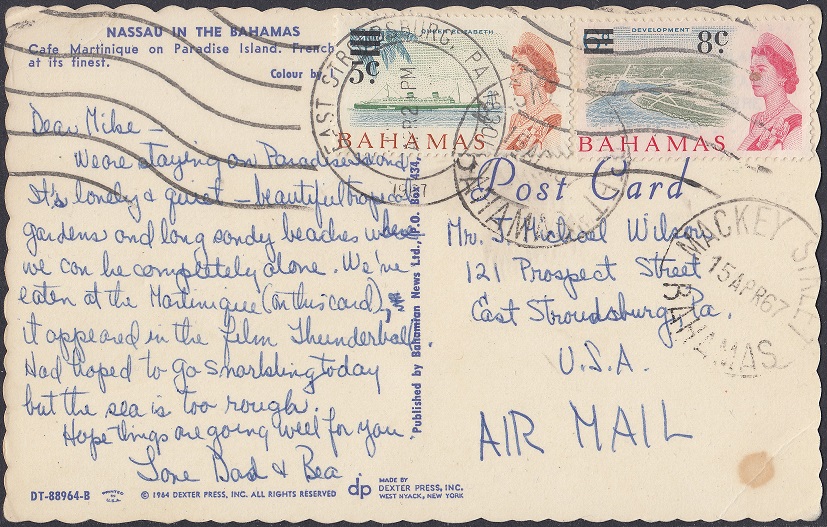 NASSAU IN THE BAHAMAS
Cafe Martinique on Paradise Island. French
at its finest.
Colour by
Dear Mike –
We are staying on Paradise Island.
It's lonely & quiet – beautiful tropical
gardens and long sandy beaches where
we can be completely alone. We've
eaten at the Martinique (on this card),
it appeared in the film Thunderball.
Had hoped to go snorkling today
but the sea is too rough.
Hope things are going well for you.
Love Dad & Bea.
DT-88964-B
PRINTED IN U.S.A.
© 1964 DEXTER PRESS, INC. ALL RIGHTS RESERVED
dp
MADE BY
DEXTER PRESS, INC.
WEST NYACK, NEW YORK
Published by Bahamian News Ltd., P.O. Box 434,
QUEEN ELIZABETH
5c
BAHAMAS
DEVELOPMENT
8c
BAHAMAS
EAST STROUDSBURG, PA.
PM
1967
MACKEY STREET
15 APR 67
BAHAMAS
Post Card
Mr. J. Michael Wilson
121 Prospect Street
East Stroudsburg, Pa.
U.S.A.
AIR MAIL